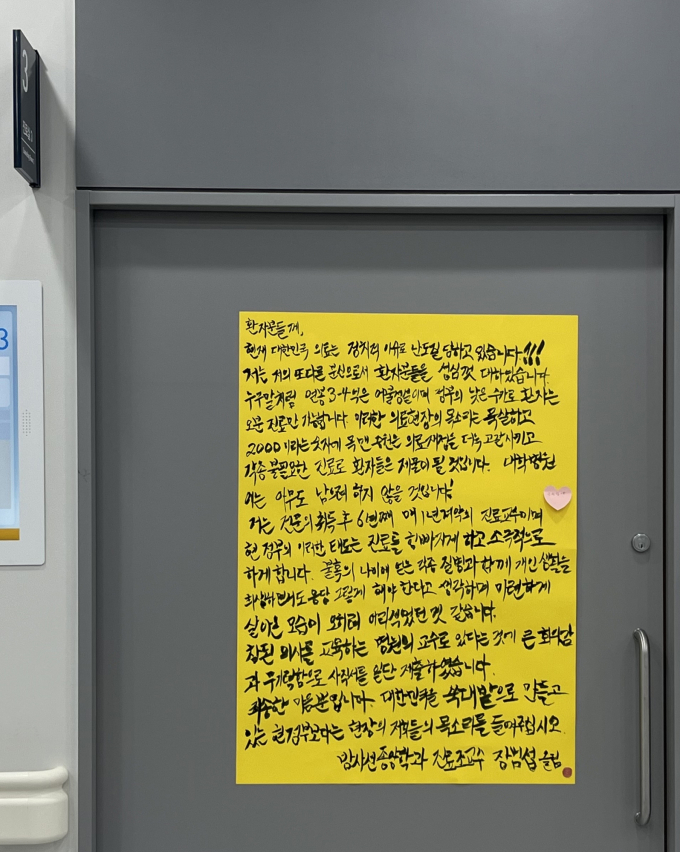 3
환자분들께,
현재 대한민국 의료는 정치적 이슈로 난도질 당하고 있습니다!!!
저는 저의 또다른 분신으로서 환자분들을 성심껏 대하였습니다.
누구말처럼 연봉 3-4억은 어불성설이며 정부의 낮은 수가로 환자는
오분 진료만 가능합니다. 이러한 의료현장의 목소리는 묵살하고
2000이라는 숫자에 목맨 우리는 의료재정을 더욱 고갈시키고
각종 불필요한 진료로 환자들은 제물이 될 것입니다. 대학병원
에는 아무도 남으려 하지 않을 것입니다!
저는 전문의 취득 후 6번째 매 1년 계약의 진료교수이며
현 정부의 이러한 태도는 진료를 힘빠지게 하고 소극적으로
하게 합니다. 불혹의 나이에 얻은 각종 질병과 함께 개인 생활을
희생하면서도 응당 그렇게 해야 한다고 생각하며 미련하게
살아온 모습이 오히려 어리석었던 것 같습니다.
참된 의사를 교육하는 병원의 교수로 있다는 것에 큰 회의감
과 무기력함으로 사직서를 일단 제출하였습니다.
죄송한 마음뿐입니다. 대한민국을 쑥대밭으로 만들고
있는 현 정부보다는 현장의 저희들의 목소리를 들어주십시오.
방사선종양학과 진료조교수 장범섭 올림
3